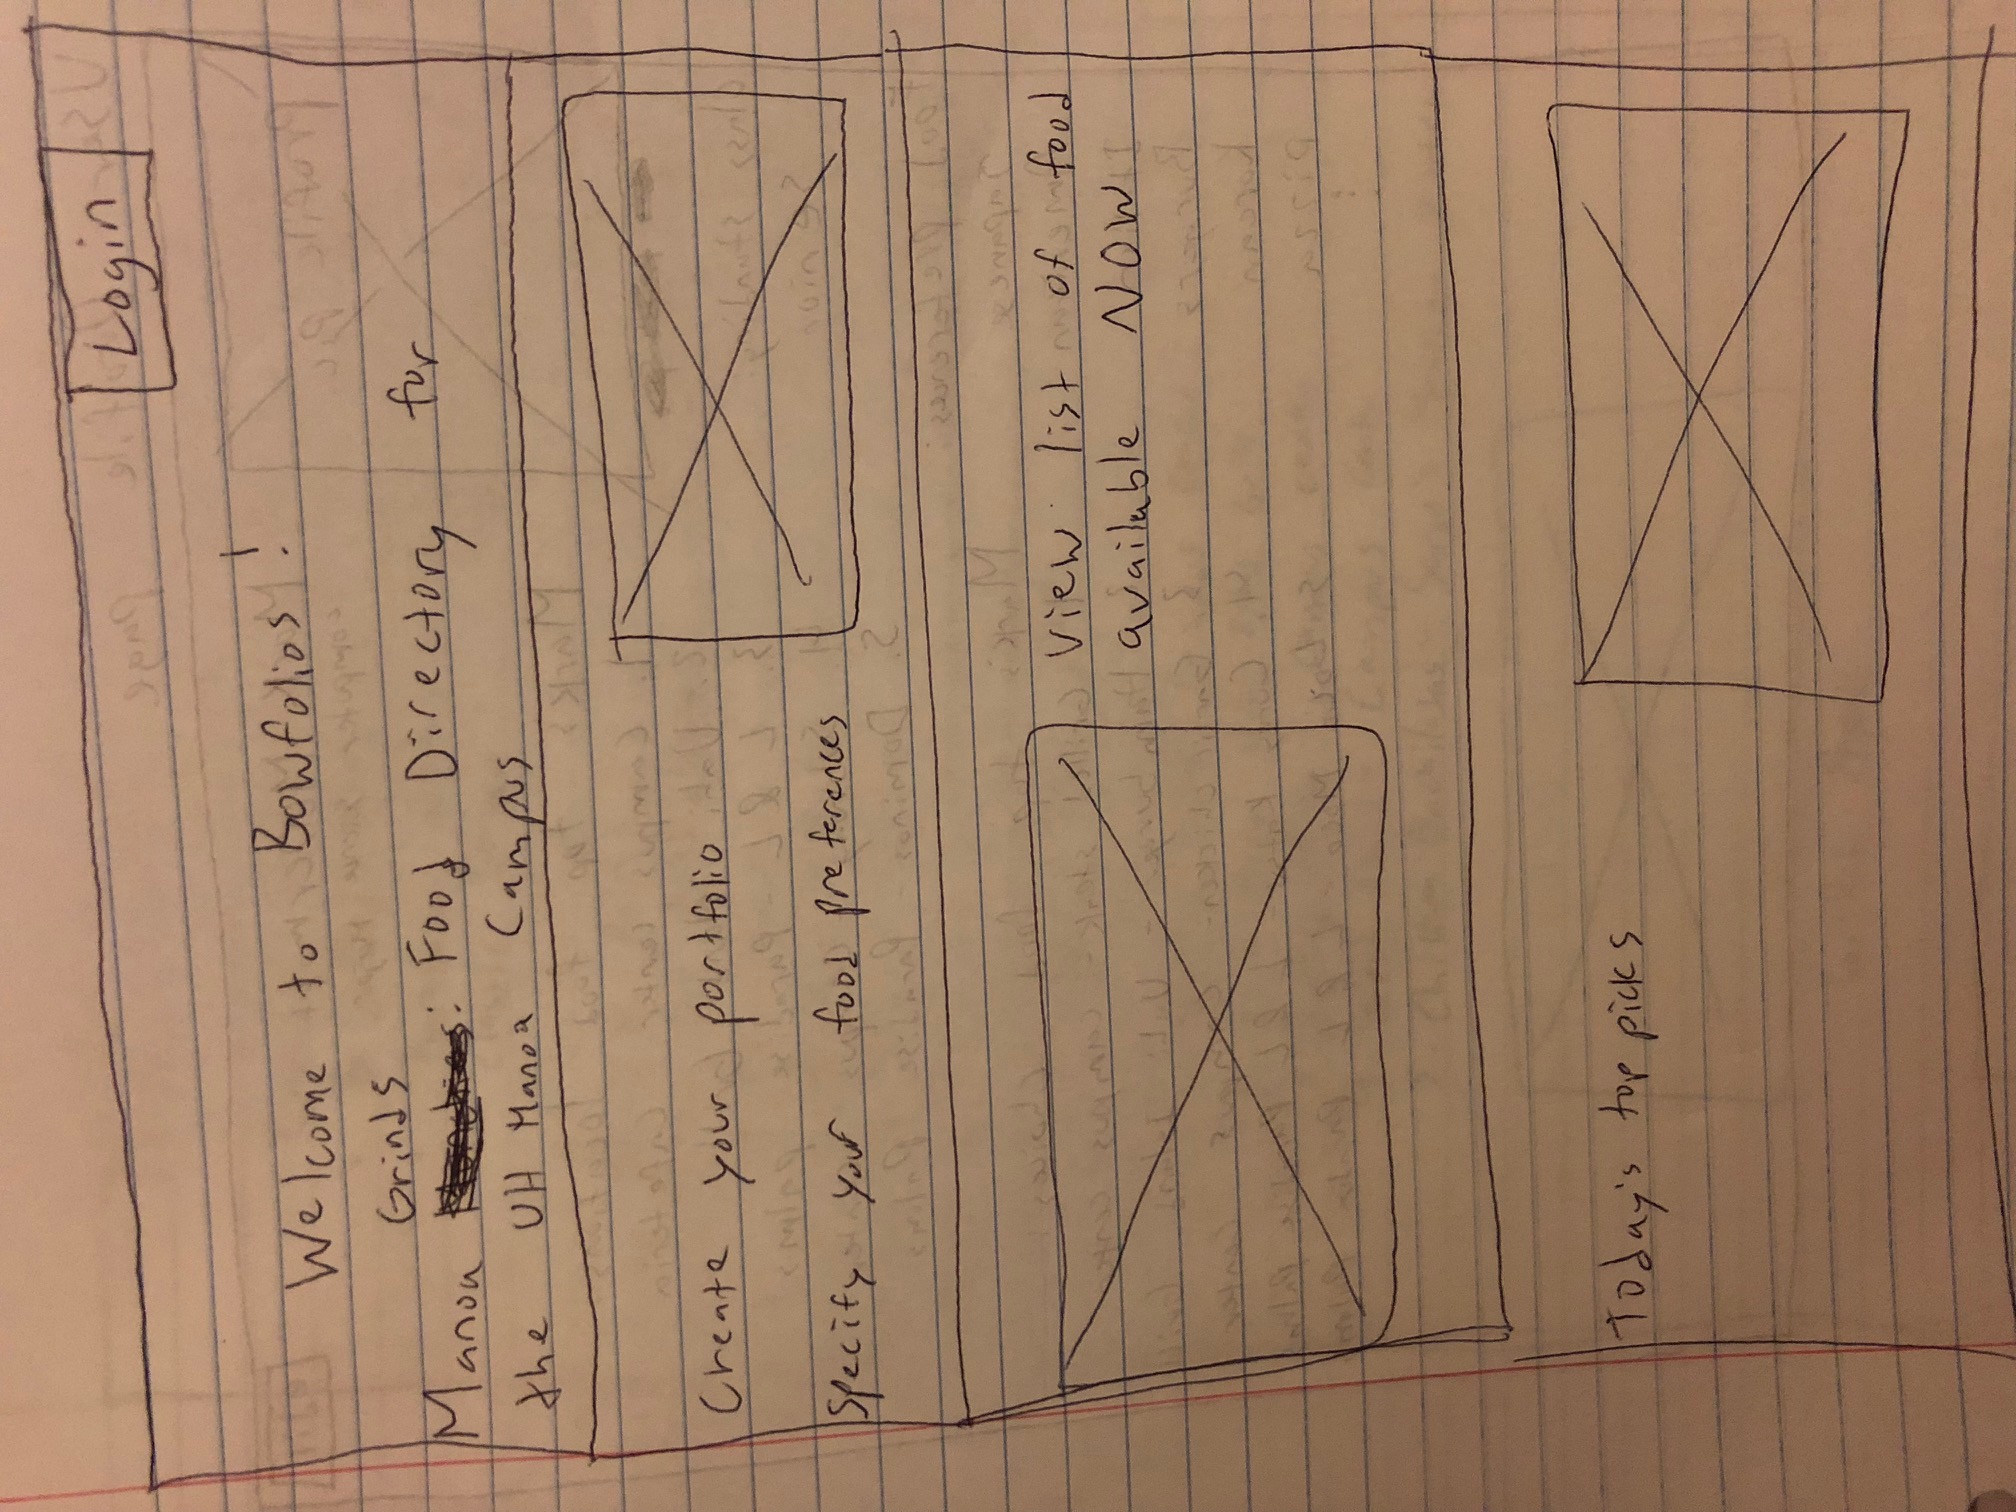 Login
Welcome to Bowfolios!
Grinds
Manoa Munchies: Food Directory for
the UH Manoa Campus
Create your portfolio
Specify your food preferences
View list of food
available NOW
Today's top picks